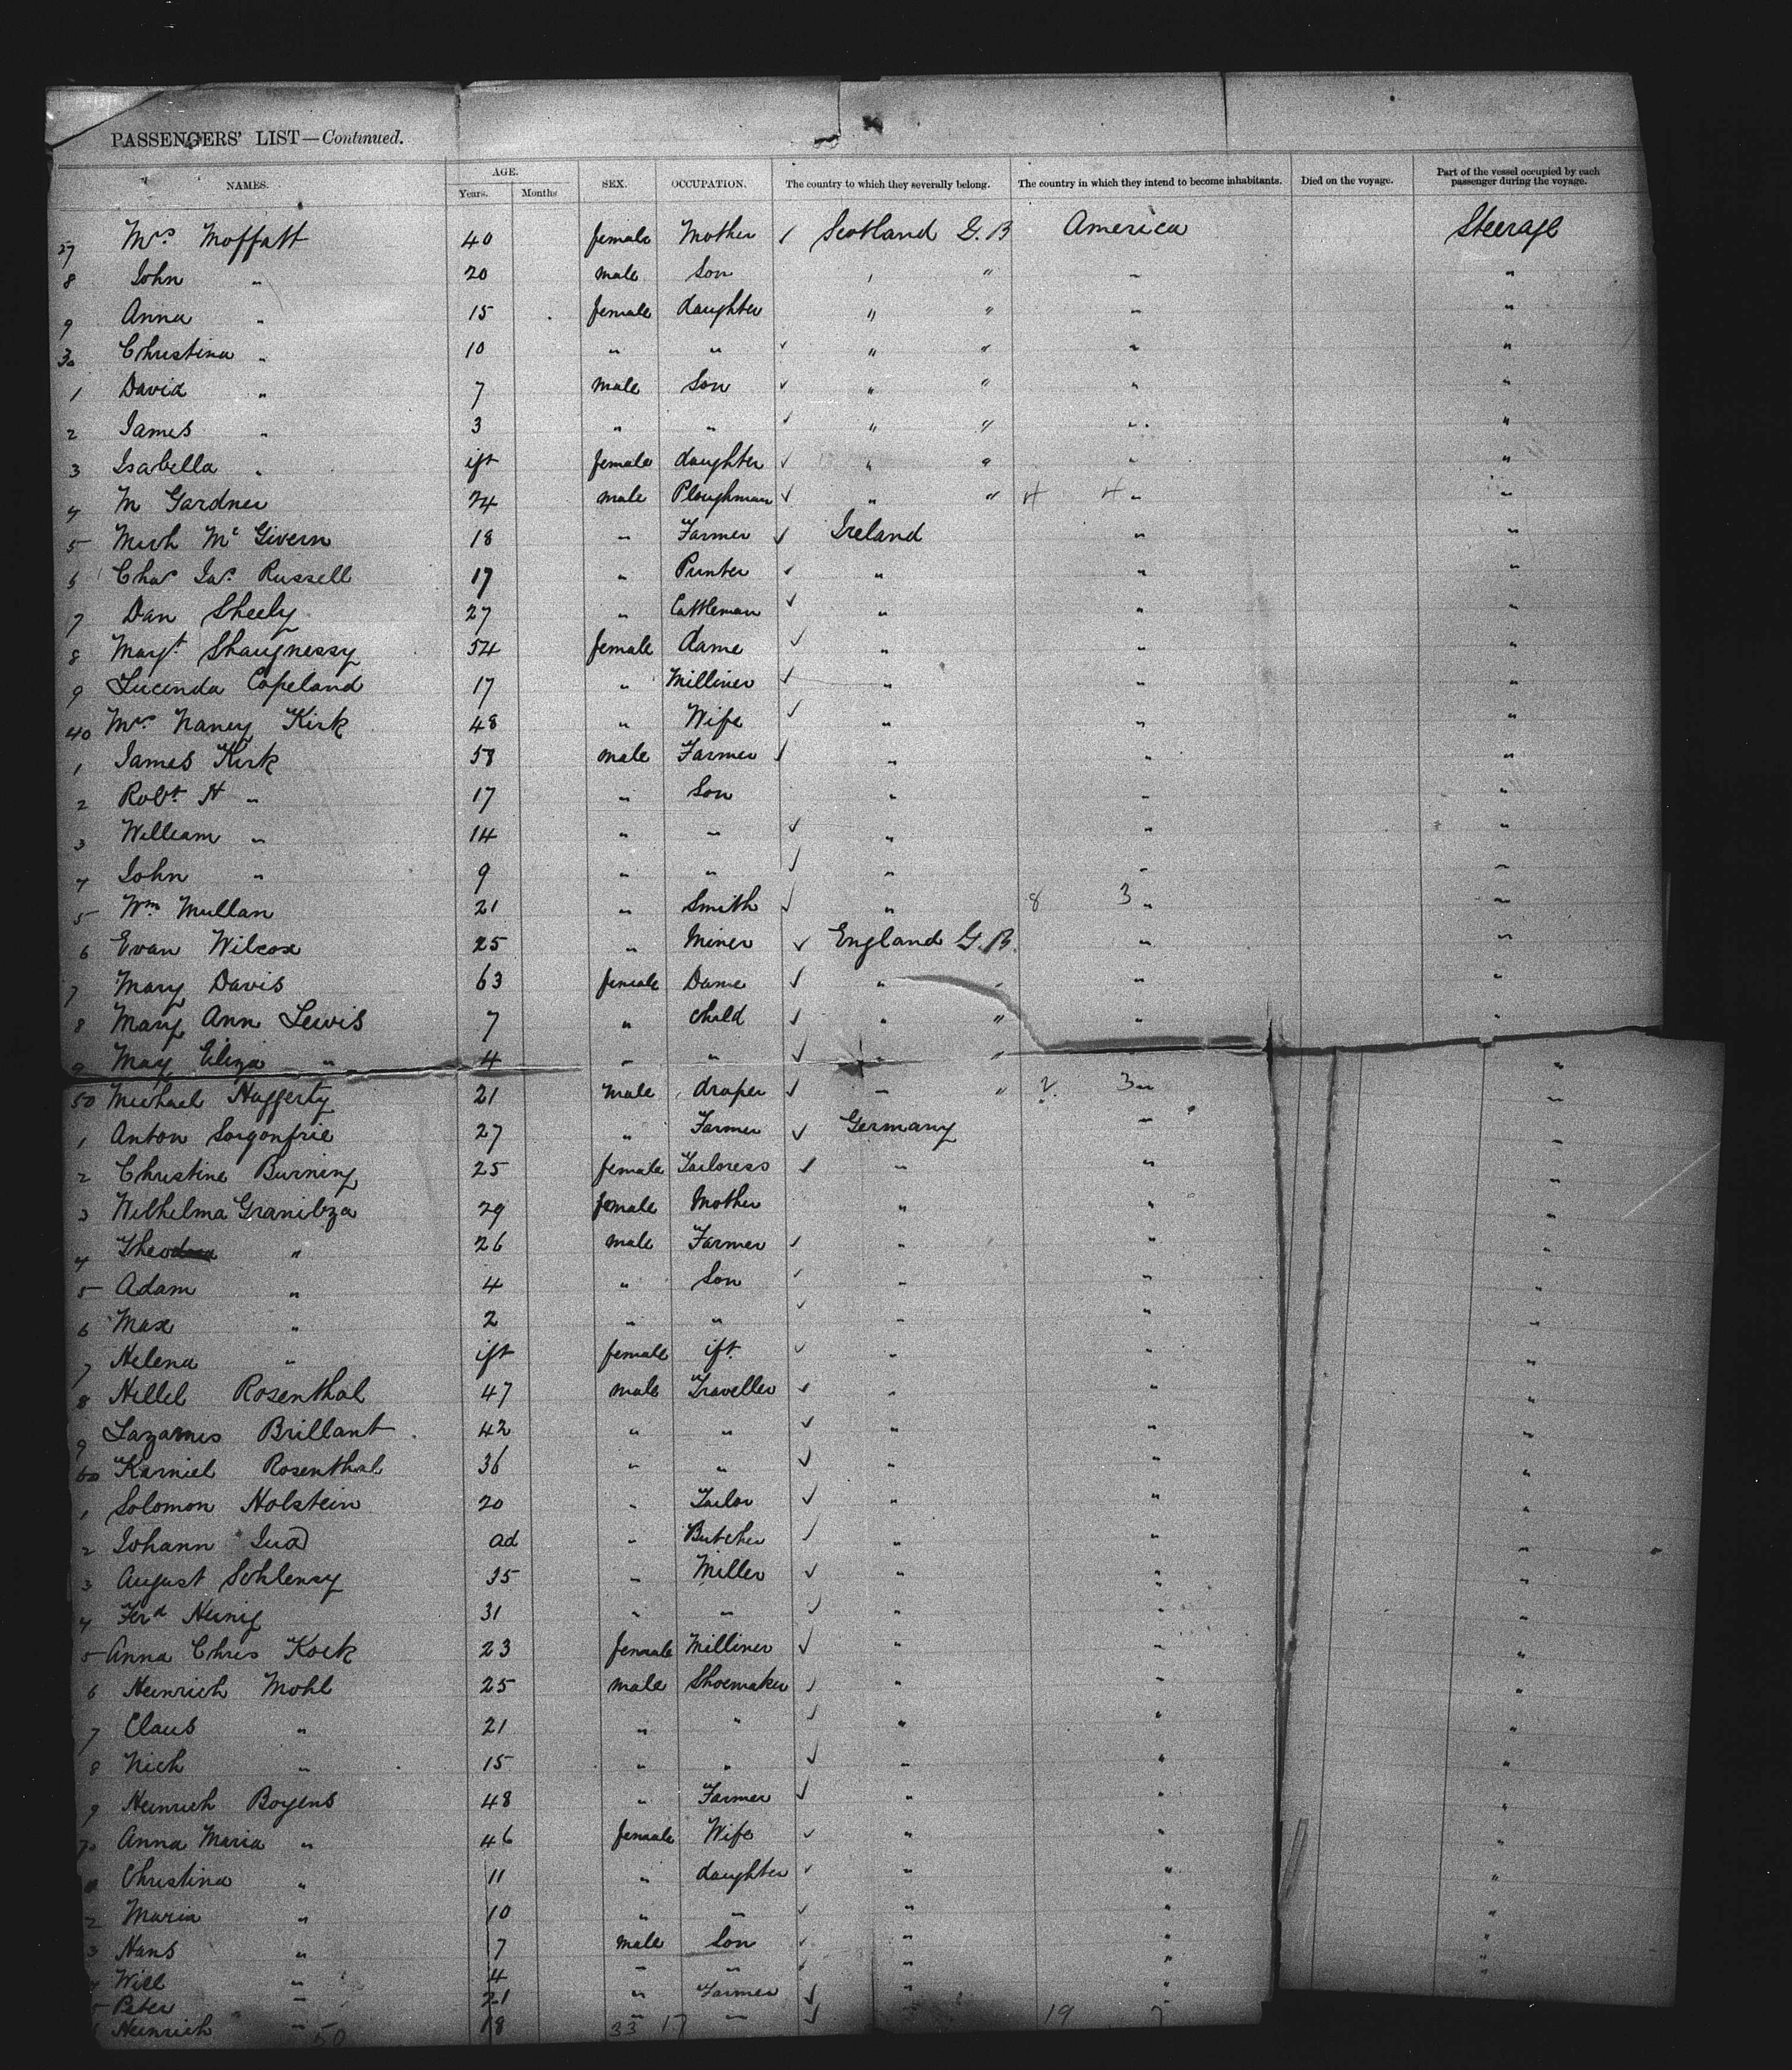 PASSENGERS' LIST—Continued.
NAMES. AGE. Years. Months SEX. OCCUPATION. The country to which they severally belong. The country in which they intend to become inhabitants. Died on the voyage. Part of the vessel occupied by each passenger during the voyage.
27 Mrs Moffatt 40 female Mother Scotland G. B America Steerage
8 John " 20 male Son " " " "
9 Anna " 15 female daughter " " " "
30 Christina " 10 " " " " " "
1 David " 7 male Son " " " "
2 James " 3 " " " " " "
3 Isabella " ift female daughter " " " "
4 M Gardner 24 male Ploughman " " 4 4 " "
5 Mich Mc Givern 18 " Farmer Ireland " "
6 Chas Jas. Russell 17 " Printer " " "
7 Dan Sheely 27 " Cattleman " " "
8 Margt. Shaugnessy 54 female dame " " "
9 Lucinda Copeland 17 " Milliner " " "
40 Mrs Nancy Kirk 48 " Wife " " "
1 James Kirk 58 male Farmer " " "
2 Robt H " 17 " Son " " "
3 William " 14 " " " " "
4 John " 9 " " " " "
5 Wm Mullan 21 " Smith " 8 3 " "
6 Evan Wilcox 25 " Miner England G. B. " "
7 Mary Davis 63 female Dame " " " "
8 Mary Ann Lewis 7 " child " " " "
9 May Eliza " 4 " " " " "
50 Michael Haggerty 21 male draper " " 2. 3 " "
1 Anton Sorgonfrie 27 " Farmer Germany " "
2 Christine Burning 25 female Tailoress " " "
3 Wilhelma Granibza 29 female Mother " " "
4 Theo " 26 male Farmer " " "
5 Adam " 4 " Son " " "
6 Max " 2 " " " " "
7 Helena " ift female ift. " " "
8 Hillel Rosenthal 47 male Traveller " " "
9 Lazarnis Brillant 42 " " " " "
60 Karniel Rosenthal 36 " " " " "
1 Solomon Holstein 20 " Tailor " " "
2 Johann ad " Butcher " " "
3 August Schlensy 35 " Miller " " "
4 Ferd Hennig 31 " " " " "
5 Anna Chris Kock 23 female Milliner " " "
6 Heinrich Mohl 25 male Shoemaker " " "
7 Claus " 21 " " " " "
8 Nich " 15 " " " " "
9 Heinrich Boyens 48 " Farmer " " "
70 Anna Maria " 46 female Wife " " "
Christina " 11 " daughter " " "
2 Maria " 10 " " " " "
3 Hans " 7 male Son " " "
4 Will " 4 " " " " "
5 Peter " 21 " Farmer " " "
Heinrich " 18 " "
50 33 17 19